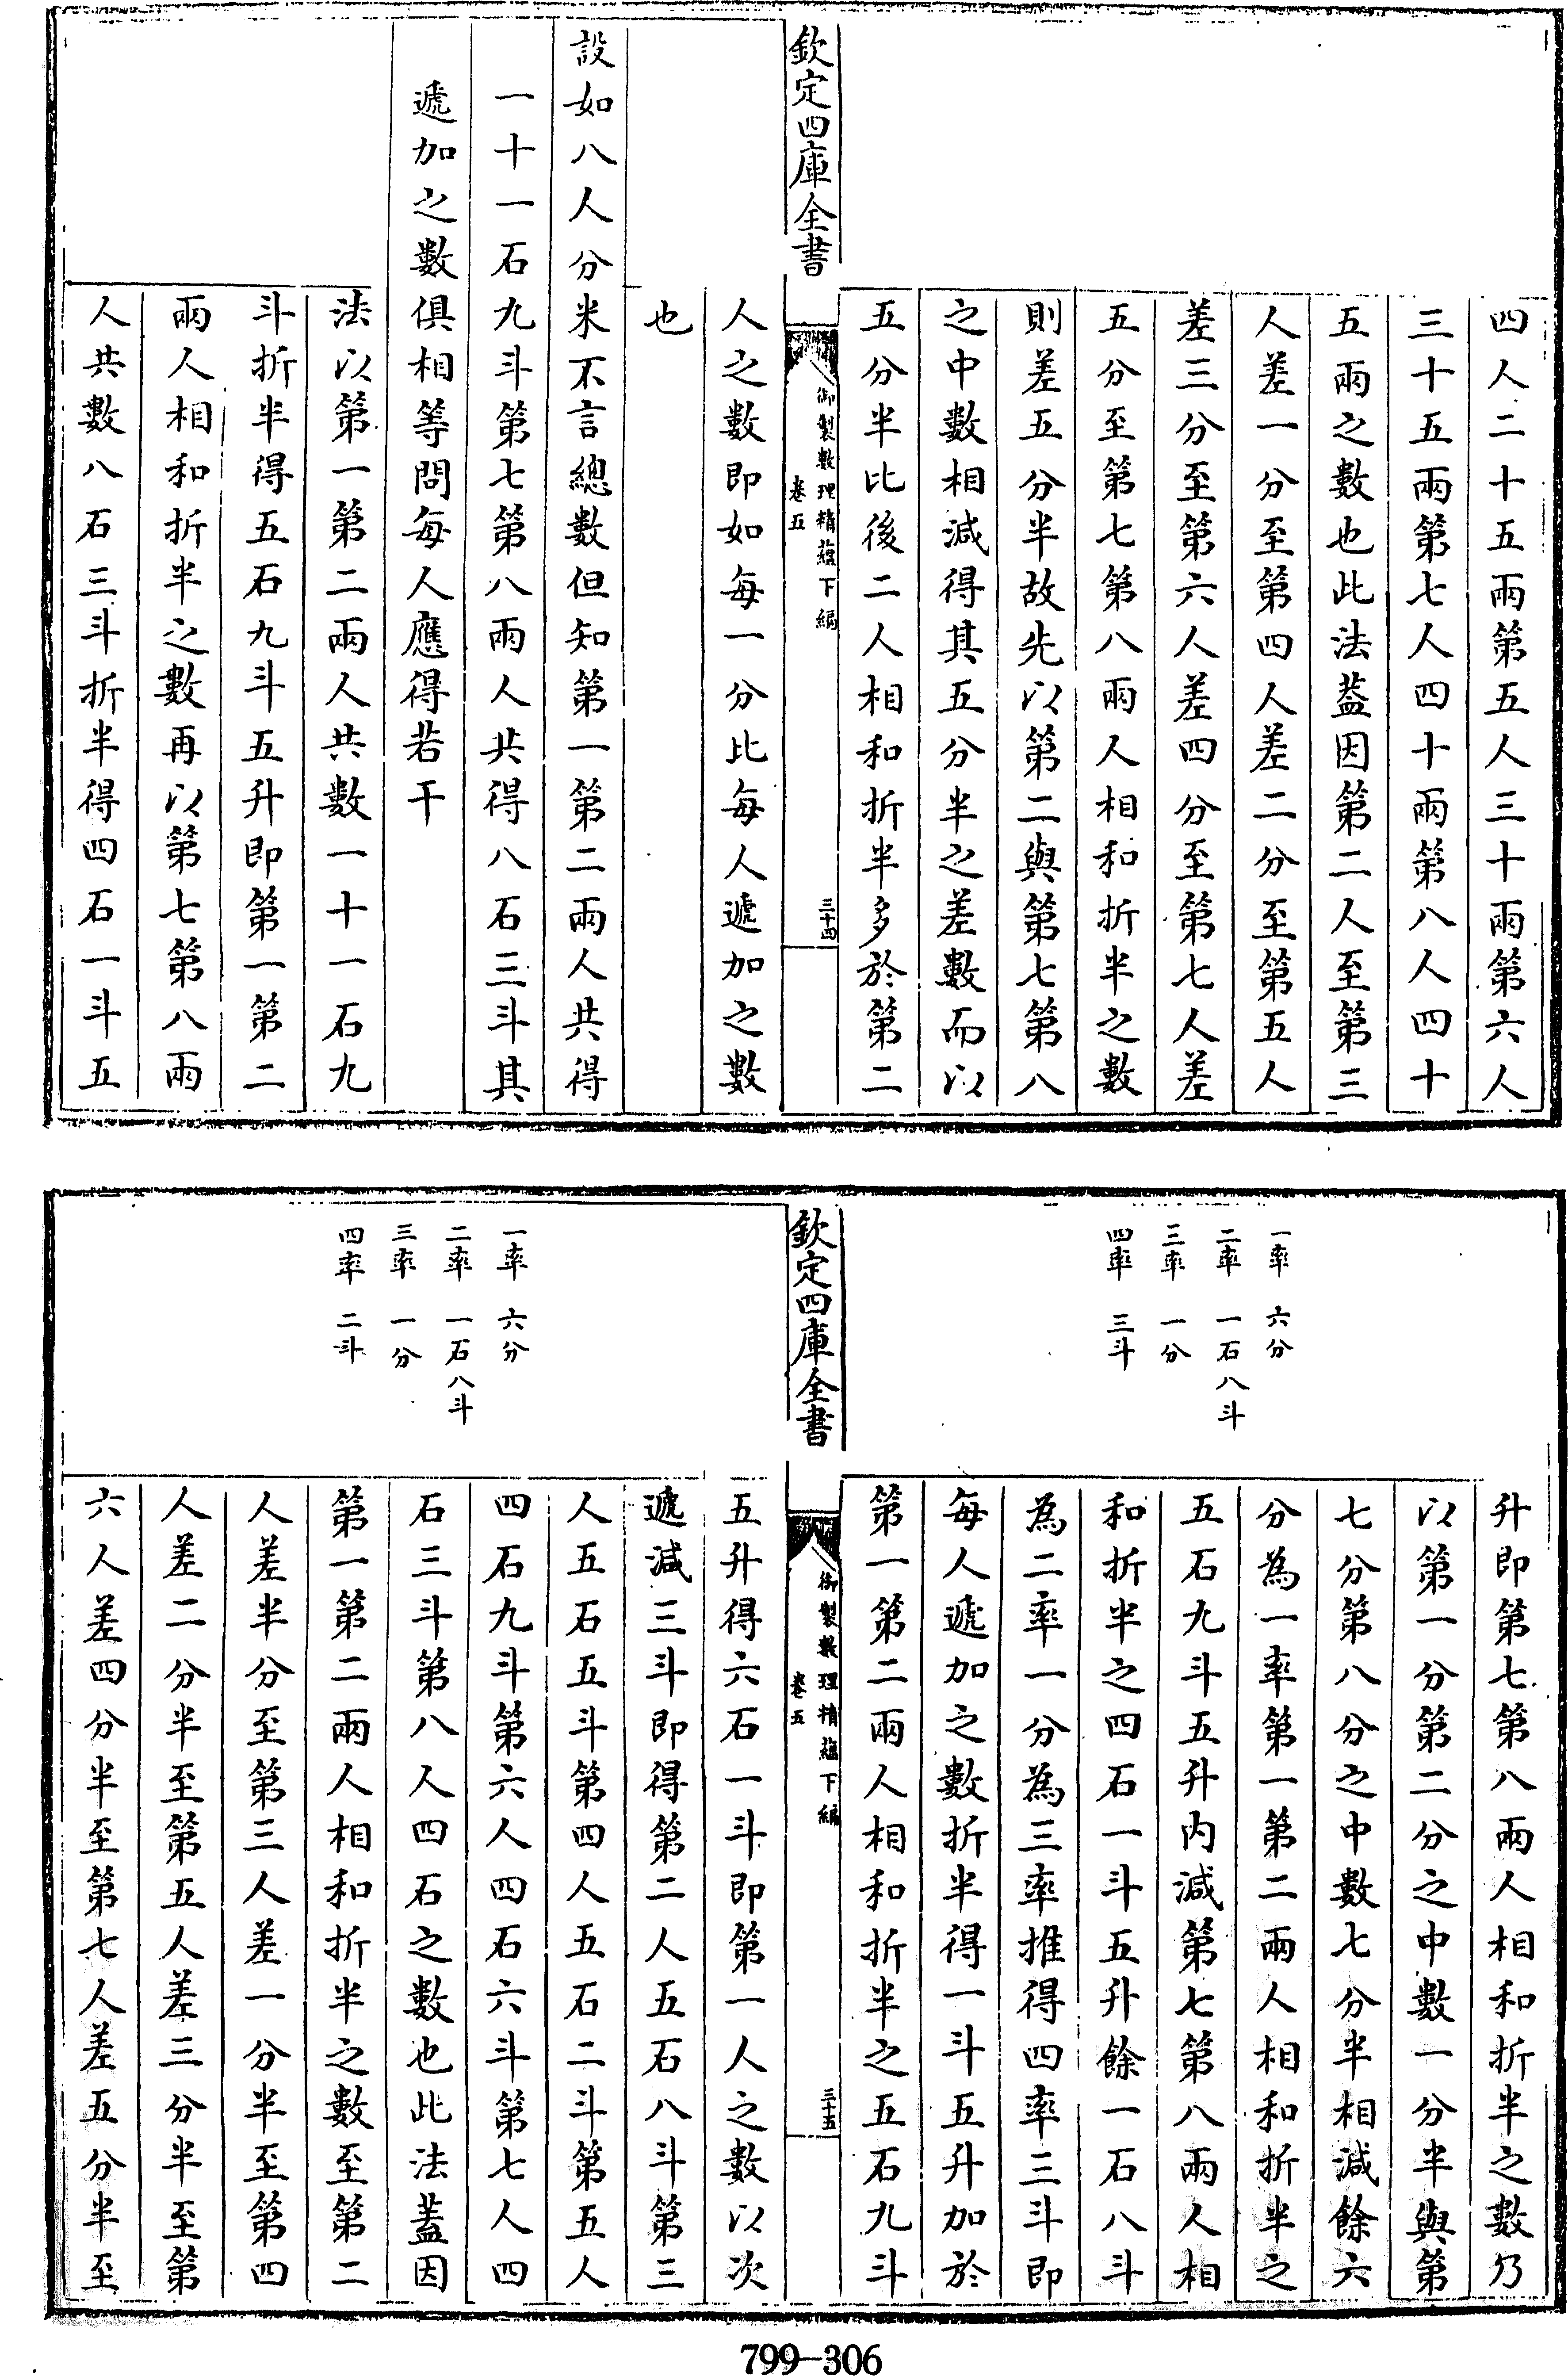 四人二十五兩第五人三十兩第六人
三十五兩第七人四十兩第八人四十
五兩之數也此法葢因第二人至第三
人差一分至第四人差二分至第五人
差三分至第六人差四分至第七人差
五分至第七第八兩人相和折半之數
則差五分半故先以第二與第七第八
之中數相減得其五分半之差數而以
五分半比後二人相和折半多於第二
欽定四庫全書
御製數理精蘊下編
卷五
三十四
人之數即如每一分比每人遞加之數
也
設如八人分米不言總數但知第一第二兩人共得
一十一石九斗第七第八兩人共得八石三斗其
遞加之數俱相等問每人應得若干
法以第一第二兩人共數一十一石九
斗折半得五石九斗五升即第一第二
兩人相和折半之數再以第七第八兩
人共數八石三斗折半得四石一斗五
一率 六分
二率 一石八斗
三率 一分
四率 三斗
升即第七第八兩人相和折半之數乃
以第一分第二分之中數一分半與第
七分第八分之中數七分半相減餘六
分為一率第一第二兩人相和折半之
五石九斗五升內減第七第八兩人相
和折半之四石一斗五升餘一石八斗
為二率一分為三率推得四率三斗即
每人遞加之數折半得一斗五升加於
第一第二兩人相和折半之五石九斗
欽定四庫全書
御製數理精蘊下編
卷五
三十五
一率 六分
二率 一石八斗
三率 一分
四率 二斗
五升得六石一斗即第一人之數以次
遞減三斗即得第二人五石八斗第三
人五石五斗第四人五石二斗第五人
四石九斗第六人四石六斗第七人四
石三斗第八人四石之數也此法蓋因
第一第二兩人相和折半之數至第二
人差半分至第三人差一分半至第四
人差二分半至第五人差三分半至第
六人差四分半至第七人差五分半至
799-306